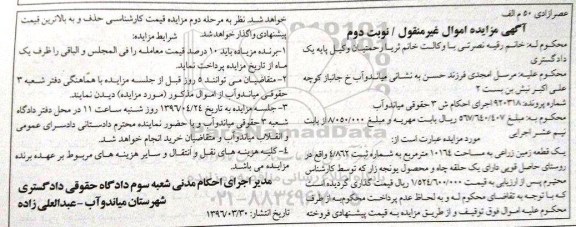 عصر آزادی ۵۰ م الف
آگهی مزایده اموال غیرمنقول / نوبت دوم
محکوم له: خانم رقیه نصرتی با وکالت خانم ثریا رحمتیان وکیل پایه یک
دادگستری
محکوم علیه: مرسل امجدی فرزند حسن به نشانی میاندوآب خ جانباز کوچه
علی اکبر نبش بن بست ۲
شماره پرونده: ۹۲۰۳۱۸ اجرای احکام ش ۳ حقوقی میاندوآب
محکوم به: مبلغ ۵۶۷/۶۴۰/۴۰۷ ریال بابت مهریه و مبلغ ۸/۰۵۰/۰۰۰ از بابت
نیم عشر اجرایی
مورد مزایده عبارت است از:
یک قطعه زمین زراعی به مساحت ۱۰۱۶۴ مترمربع به شماره ثبت ۴۸۶۲ واقع در
روستای حاصل قوبی دارای یک حلقه چاه و محصول یونجه زار که توسط کارشناس
محترم پس از ارزیابی به قیمت ۱/۵۲۴/۶۰۰/۰۰۰ ریال قیمت گذاری گردیده است
که با توجه به تقاضای محکوم له و به لحاظ عدم پرداخت محکوم به از طرف
محکوم علیه اموال فوق توقیف و از طریق مزایده به قیمت پیشنهادی فروخته
خواهد شد. نظر به مرحله دوم مزایده قیمت کارشناسی حذف و به بالاترین قیمت
پیشنهادی واگذار خواهد شد.
شرایط مزایده:
۱-برنده مزایده باید ۱۰ درصد قیمت معامله را فی المجلس و الباقی را ظرف یک
ماه از تاریخ مزایده پرداخت نماید.
۲-متقاضیان می توانند ۵ روز قبل از جلسه مزایده با هماهنگی دفتر شعبه ۳
حقوقی میاندوآب از اموال مذکور (مورد مزایده) دیدن نمایند.
۳- جلسه مزایده به تاریخ ۱۳۹۶/۰۴/۲۴ روز شنبه ساعت ۱۱ در محل دفتر دادگاه
شعبه ۳ حقوقی میاندوآب و با حضور نماینده محترم دادستانی دادسرای عمومی
و انقلاب میاندوآب و متقاضیان خرید انجام خواهد شد.
۴- کلیه هزینه های نقل و انتقال و سایر هزینه های مربوط بر عهده برنده
مزایده می باشد.
مدیر اجرای احکام مدنی شعبه سوم دادگاه حقوقی دادگستری
شهرستان میاندوآب - عبدالعلی زاده
تاریخ انتشار: ۱۳۹۶/۰۳/۳۰